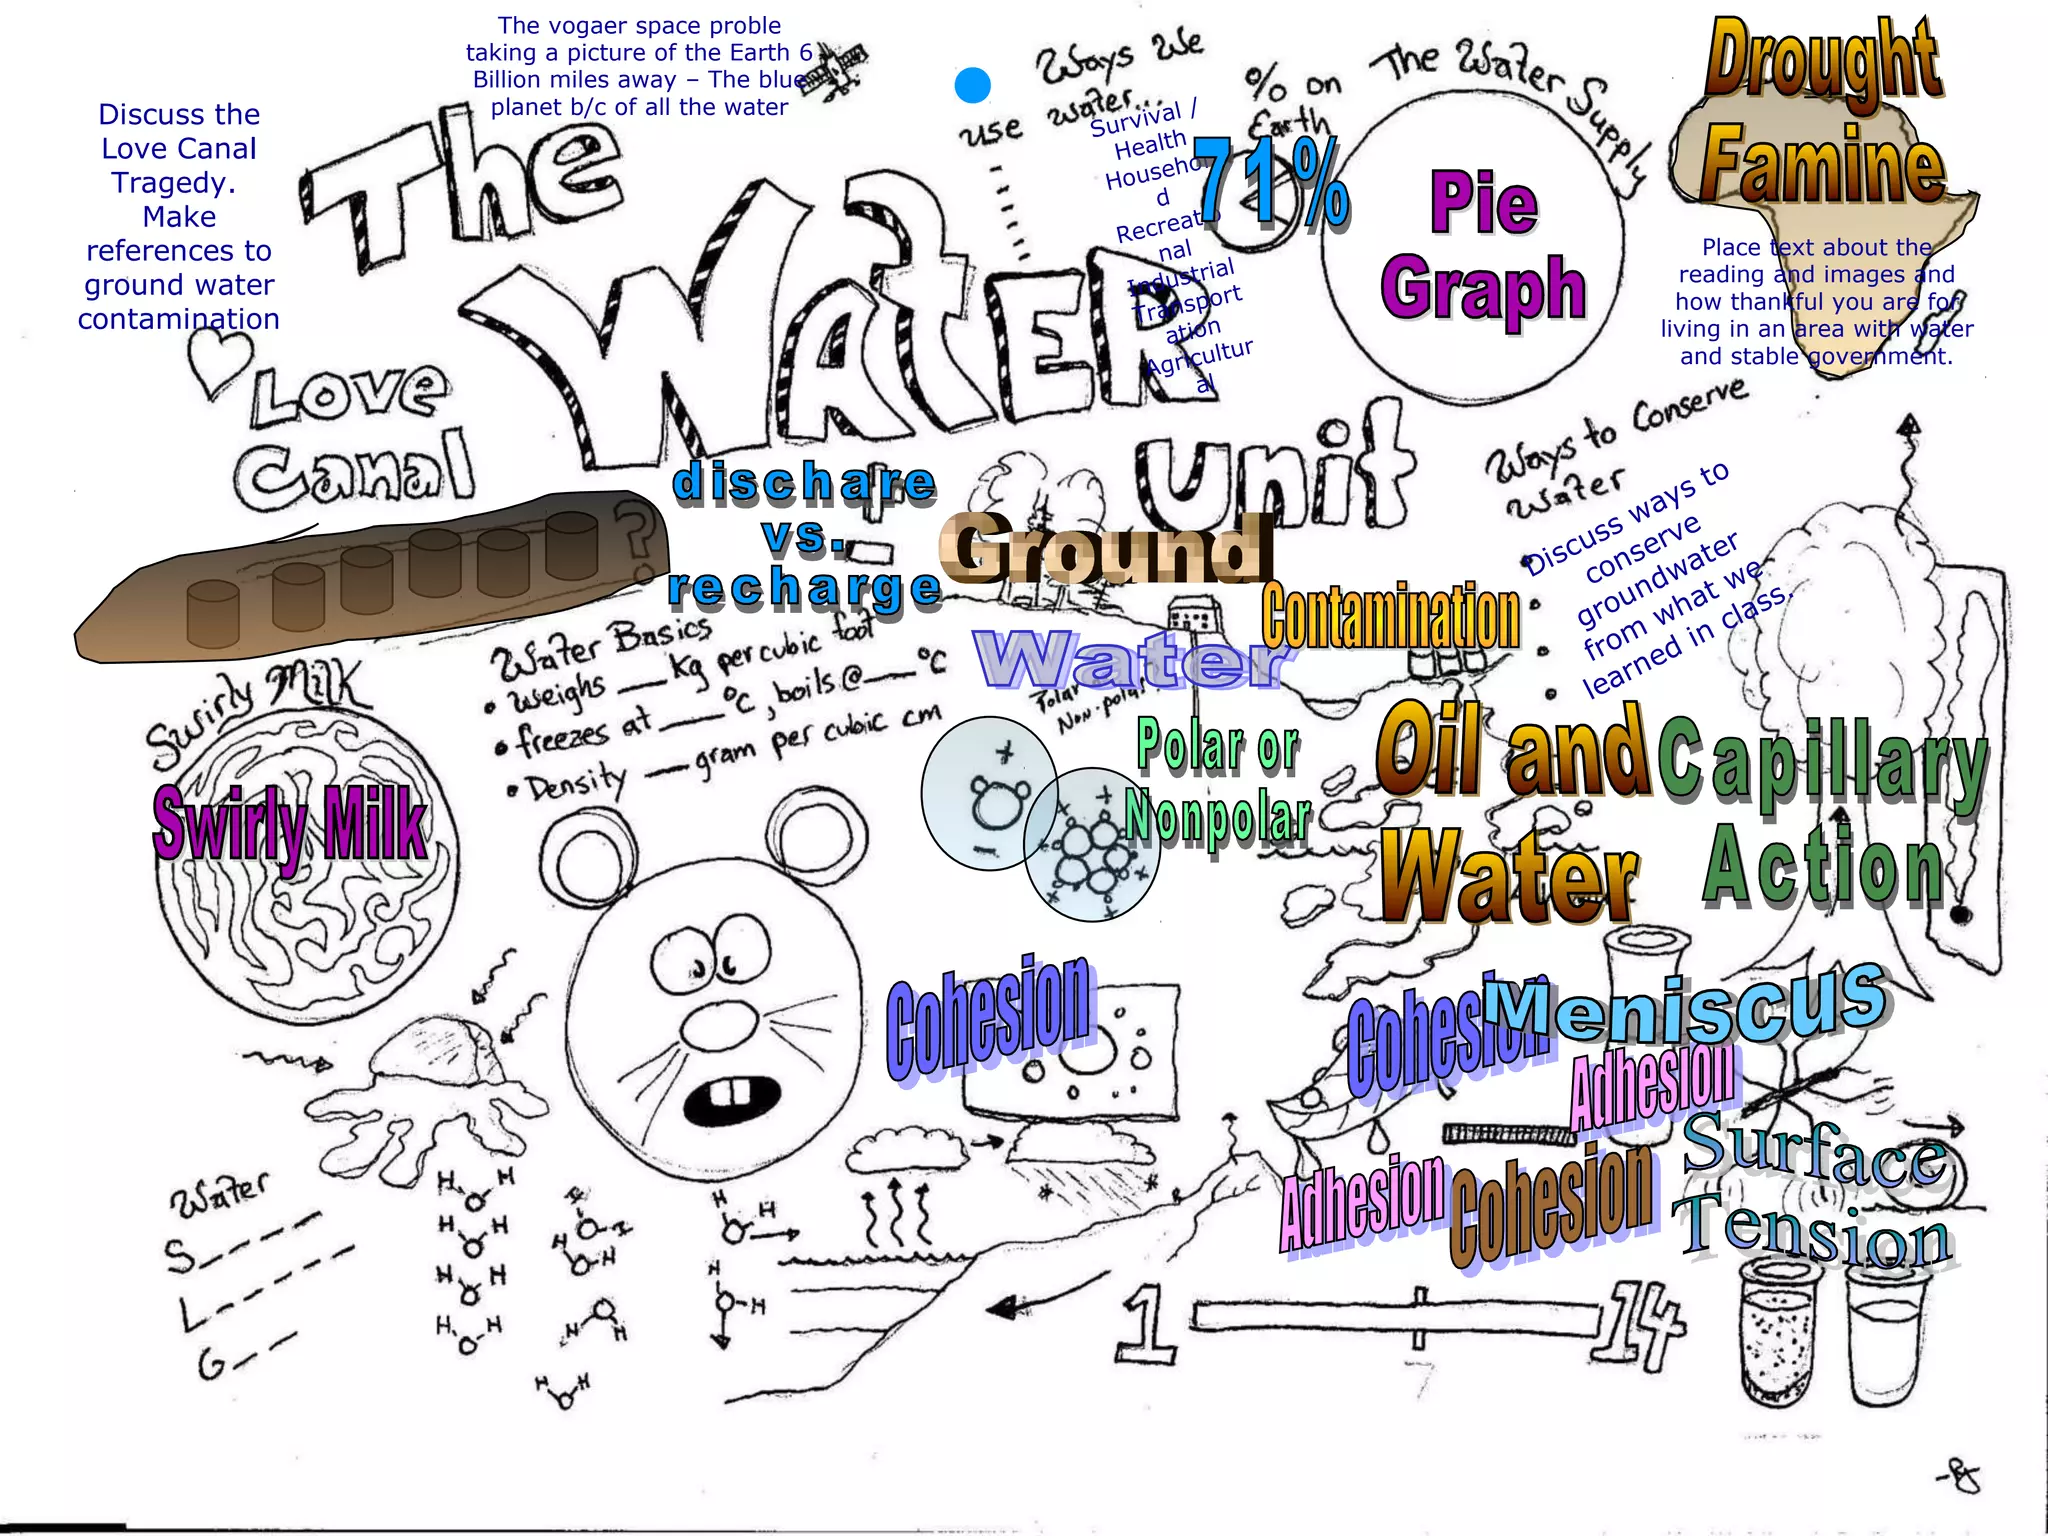 The vogaer space proble
taking a picture of the Earth 6
Billion miles away – The blue
planet b/c of all the water
Discuss the
Love Canal
Tragedy.
Make
references to
ground water
contamination
The
WATER
Unit
Ways We
use water...
Survival /
Health
Househol
d
Recreatio
nal
Industrial
Transport
ation
Agricultur
al
% on
Earth
71%
The Water Supply
Pie
Graph
Drought
Famine
Place text about the
reading and images and
how thankful you are for
living in an area with water
and stable government.
Love
Canal
?
dischare
vs.
recharge
Ground
Water
Contamination
Ways to Conserve
Water
Discuss ways to
conserve
groundwater
from what we
learned in class.
Swirly Milk
Swirly Milk
Water Basics
• weighs __ kg per cubic foot
• freezes at ___ °C, boils @ ___ °C
• Density __ gram per cubic cm
Polar or
Non-polar?
Polar or
Nonpolar
+
-
Oil and
Water
Capillary
Action
Cohesion
Cohesion
Meniscus
Adhesion
Surface
Tension
Adhesion
Cohesion
Water
S_____
L_____
G__
H H
O
1
14
7